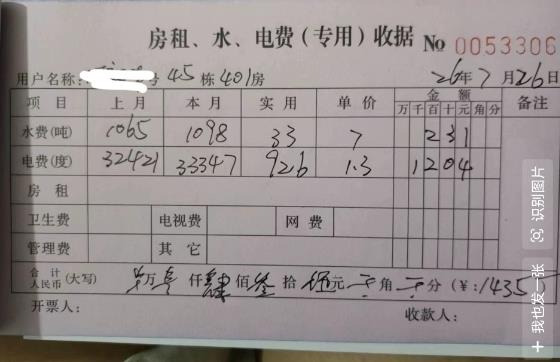 房租、水、电费(专用)收据 No 0053306
用户名称: 号45栋401房 26年7月26日
项目 上月 本月 实用 单价 金额 备注
万千百十元角分
水费(吨) 1065 1098 33 7 231
电费(度) 32421 33347 926 1.3 1204
房租
卫生费 电视费 网费
管理费 其它
合计人民币(大写) 万 仟肆佰叁拾伍元 角 分(¥:1435
开票人: 收款人:
识别图片
+ 我也发一张